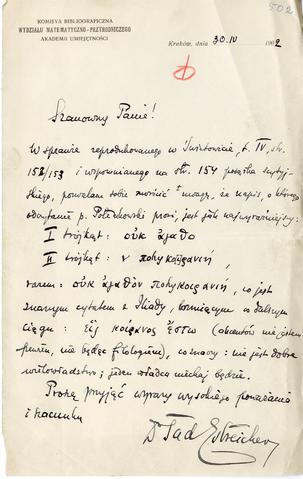 502
KOMISYA BIBLIOGRAFICZNA
WYDZIAŁU MATEMATYCZNO-PRZYRODNICZEGO
AKADEMII UMIEJĘTNOŚCI
Kraków, dnia 30. IV 1902
Szanowny Panie!
W sprawie reprodukowanego w Światowicie, t. IV, str.
152/153 i wspomnianego na str. 154 posążka
pozwalam sobie zwrócić uwagę, że napis, o którego
odczytanie p. prosi, jest jak najwyraźniejszy:
I trójkąt: οὐκ ἀγαθο
II trójkąt: ν πολυκοιρανίη
razem: οὐκ ἀγαθὸν πολυκοιρανίη, co jest
znanym cytatem z Iliady, brzmiącym w dalszym
ciągu: εἷς κοίρανος ἔστω (akcentów nie jestem
pewien, nie będąc filologiem), co znaczy: nie jest dobre
wielowładztwo; jeden władca niechaj będzie.
Proszę przyjąć wyrazy wysokiego poważania
i szacunku
Dr Tad Estreicher